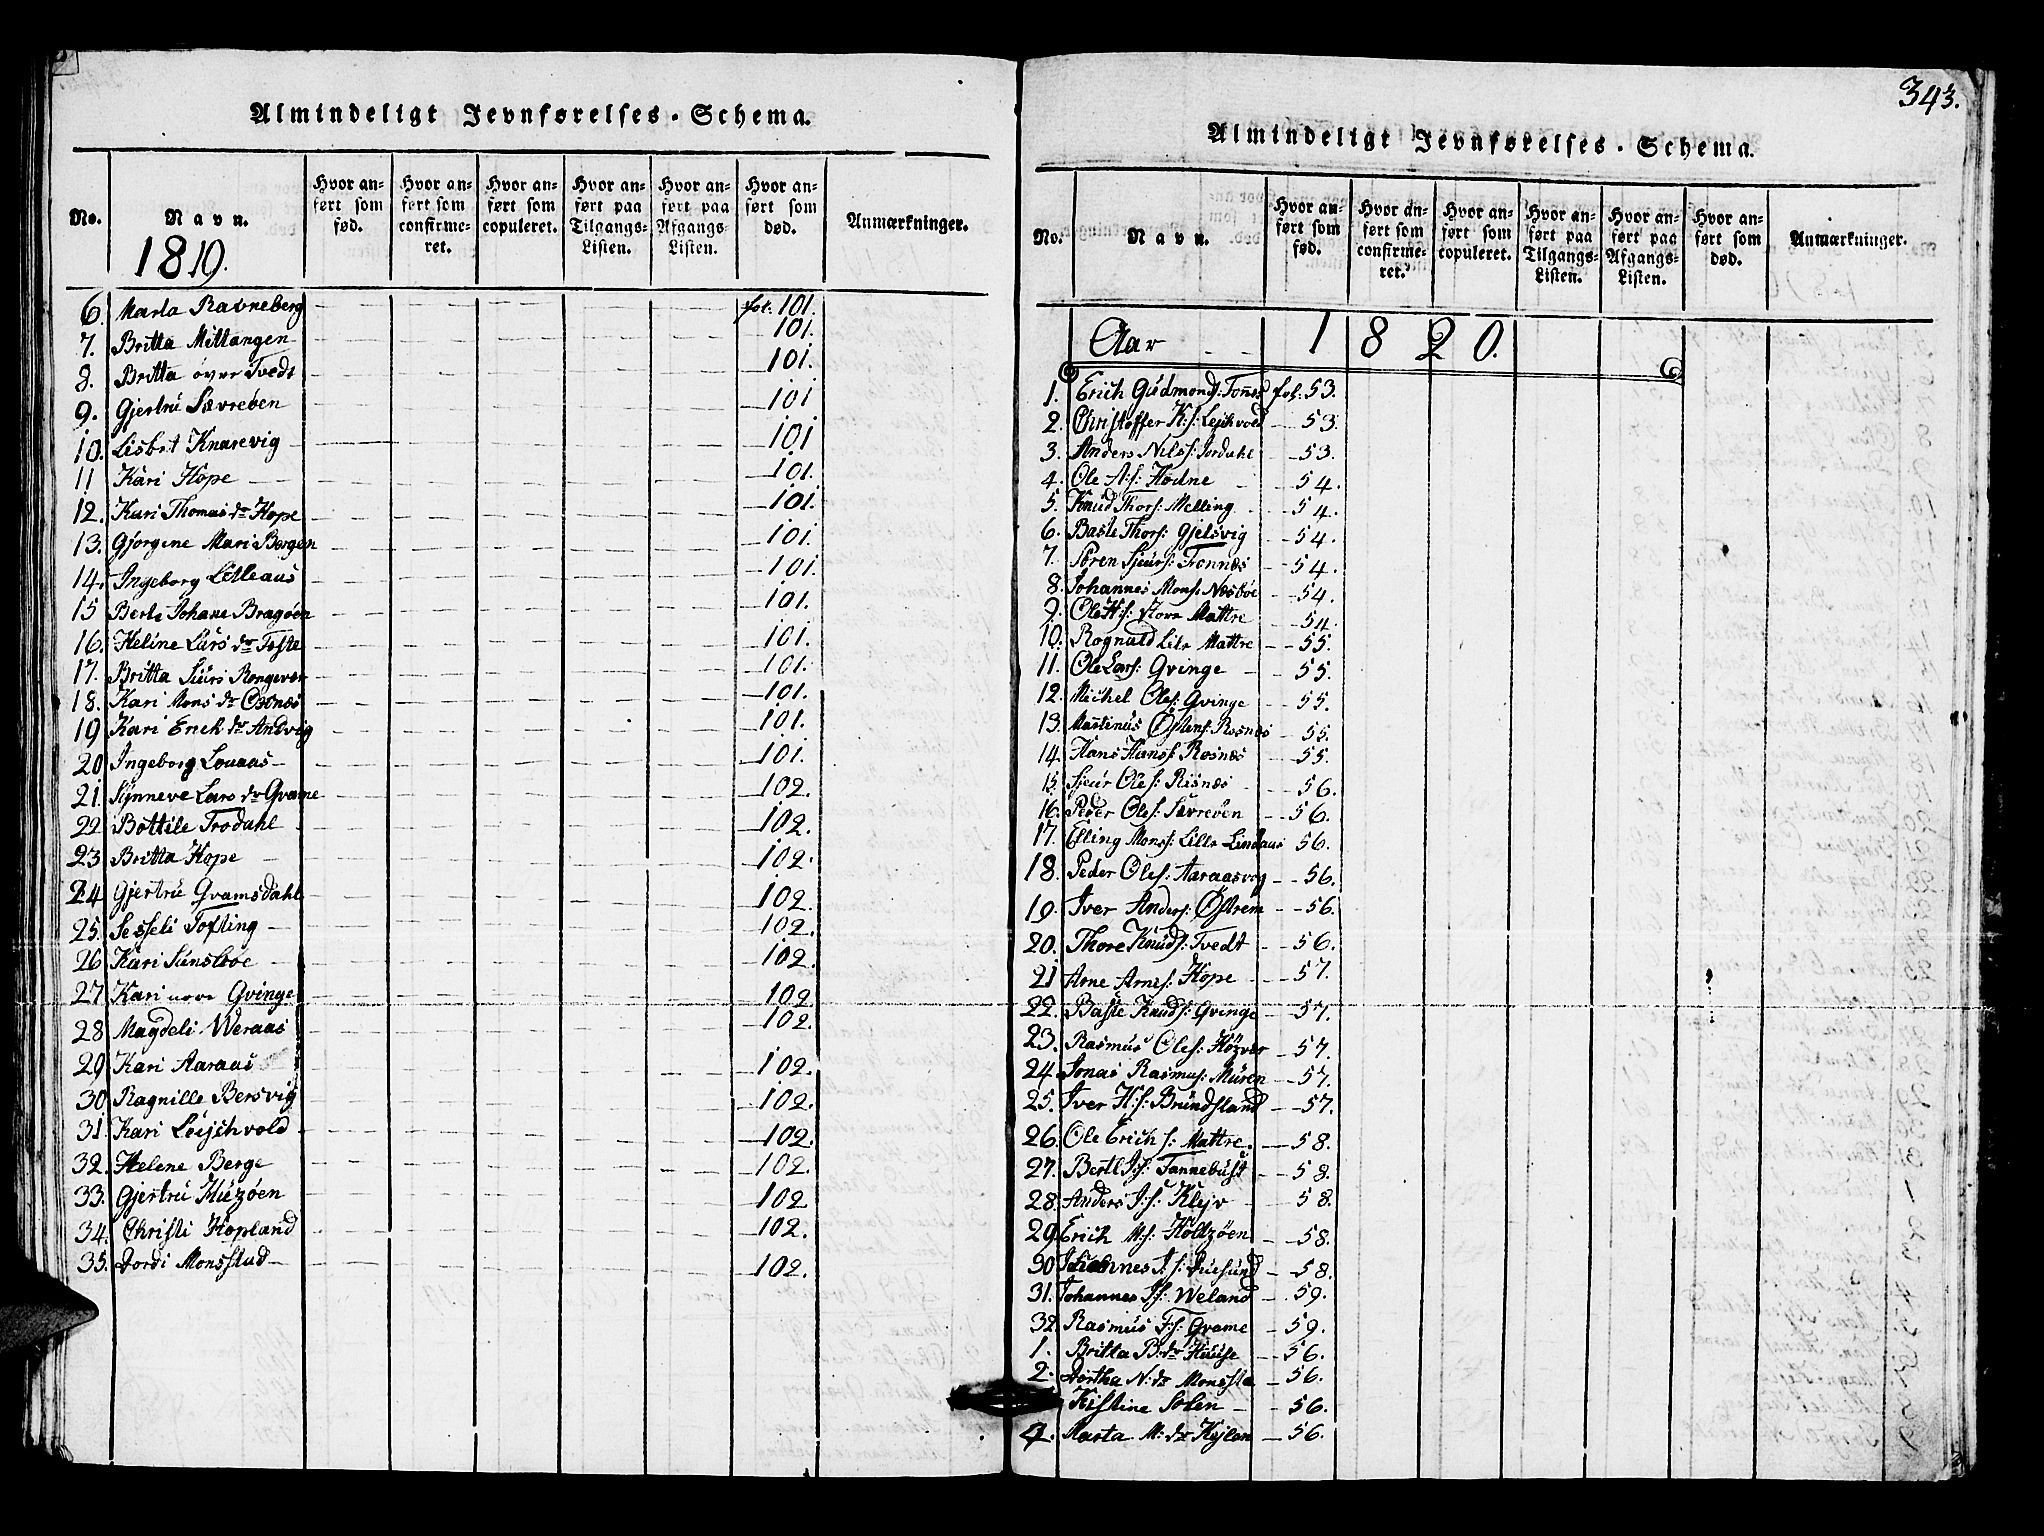 Almindeligt Jevnførelses-Schema.
No. Navn. Hvor anført som fød. Hvor anført som confirmeret. Hvor anført som copuleret. Hvor anført paa Tilgangs-Listen. Hvor anført paa Afgangs-Listen. Hvor anført som død. Anmærkninger.
1819.
6. Marta Ravneberg fol. 101.
7. Britta Mittangen 101.
8. Britta øvre Tvedt 101.
9. Gjertrü Sævreøen 101
10. Lisbet Knarevig 101
11 Kari Hope 101.
12. Kari Thomas dr Hope 101.
13. Gjørgine Mari Bergen 101.
14. Ingeborg Lilleaas 101.
15 Berte Johane Bragøen 101.
16. Heline Lars dr Feste 101.
17. Britta Siürs Rongevær 101.
18. Kari Mons dr 101.
19 Kari Erick dr Andvig 101.
20 Ingeborg Louaas 101.
21. Synneve Lars dr Qvame 102.
22 Bottile Trodahl 102.
23 Britta Hope 102.
24 Gjertrü Qvamsdahl 102.
25. Sesseli Tofting 102.
26 Kari Sünsbøe 102.
27 Kari Qvinge 102
28 Magdeli Weraas 102.
29 Kari Aaraas 102.
30 Ragnille Bersvig 102.
31. Kari Leijchvold 102.
32. Helene Berge 102.
33. Gjertrü Hüzøen 102
34. Christi Hopland 102.
35. Jordi Monsstad 102.
343.
Almindeligt Jevnførelses-Schema.
No. Navn. Hvor anført som fød. Hvor anført som confirmeret. Hvor anført som copuleret. Hvor anført paa Tilgangs-Listen. Hvor anført paa Afgangs-Listen. Hvor anført som død. Anmærkninger.
Aar 1820.
1. Erich Güdmonds: fol: 53.
2. Christoffer K:s: Lejchvold 53
3. Anders Nils: Jordahl 53.
4. Ole A:s: Hodne 54.
5. Knud Thors: Melling 54.
6. Baste Thors: Gjelsvig 54.
7. Søren Sjeurs: Fonnes 54.
8. Johannes Mons: Nesbøe 54.
9. Ole H:s: store Mattre 54.
10. Rognald Lile Mattre 55.
11. Ole Lars: Qvinge 55.
12. Michel Oles: Qvinge 55.
13. Martinus Østens: Rosnæs 55.
14. Hans Hans: Rosnæs 55.
15. Sjeür Oles: Risnæs 56.
16. Peder Oles: Sævreøen 56.
17. Elling Mons: Lille Lindaas 56.
18. Peder Oles: Aaraasvig 56.
19. Iver Anders: Østrem 56.
20. Thore Knuds: Tvedt 56.
21 Arne Arnes: Hope 57.
22. Baste Knuds: Qvinge 57.
23. Rasmus Oles: 57.
24. Jonas Rasmus: Müren 57.
25. Iver H:s: Bründsland 57.
26. Ole Erich s: Mattre. 58.
27. Bertl J:s: Fannebust 58.
28. Anders J:s: Klejv 58.
29 Erich M:s: Holtzøen 58.
30 Johannes J:s: 58.
31. Johannes J:s: Weland 59.
32. Rasmus T:s: Qvame 59.
1. Britta B:dr Hüüse 56.
2. Dortha N:dr Monssta 56.
Kistine Solen 56.
4. Marta M:dr Kejlen 56.